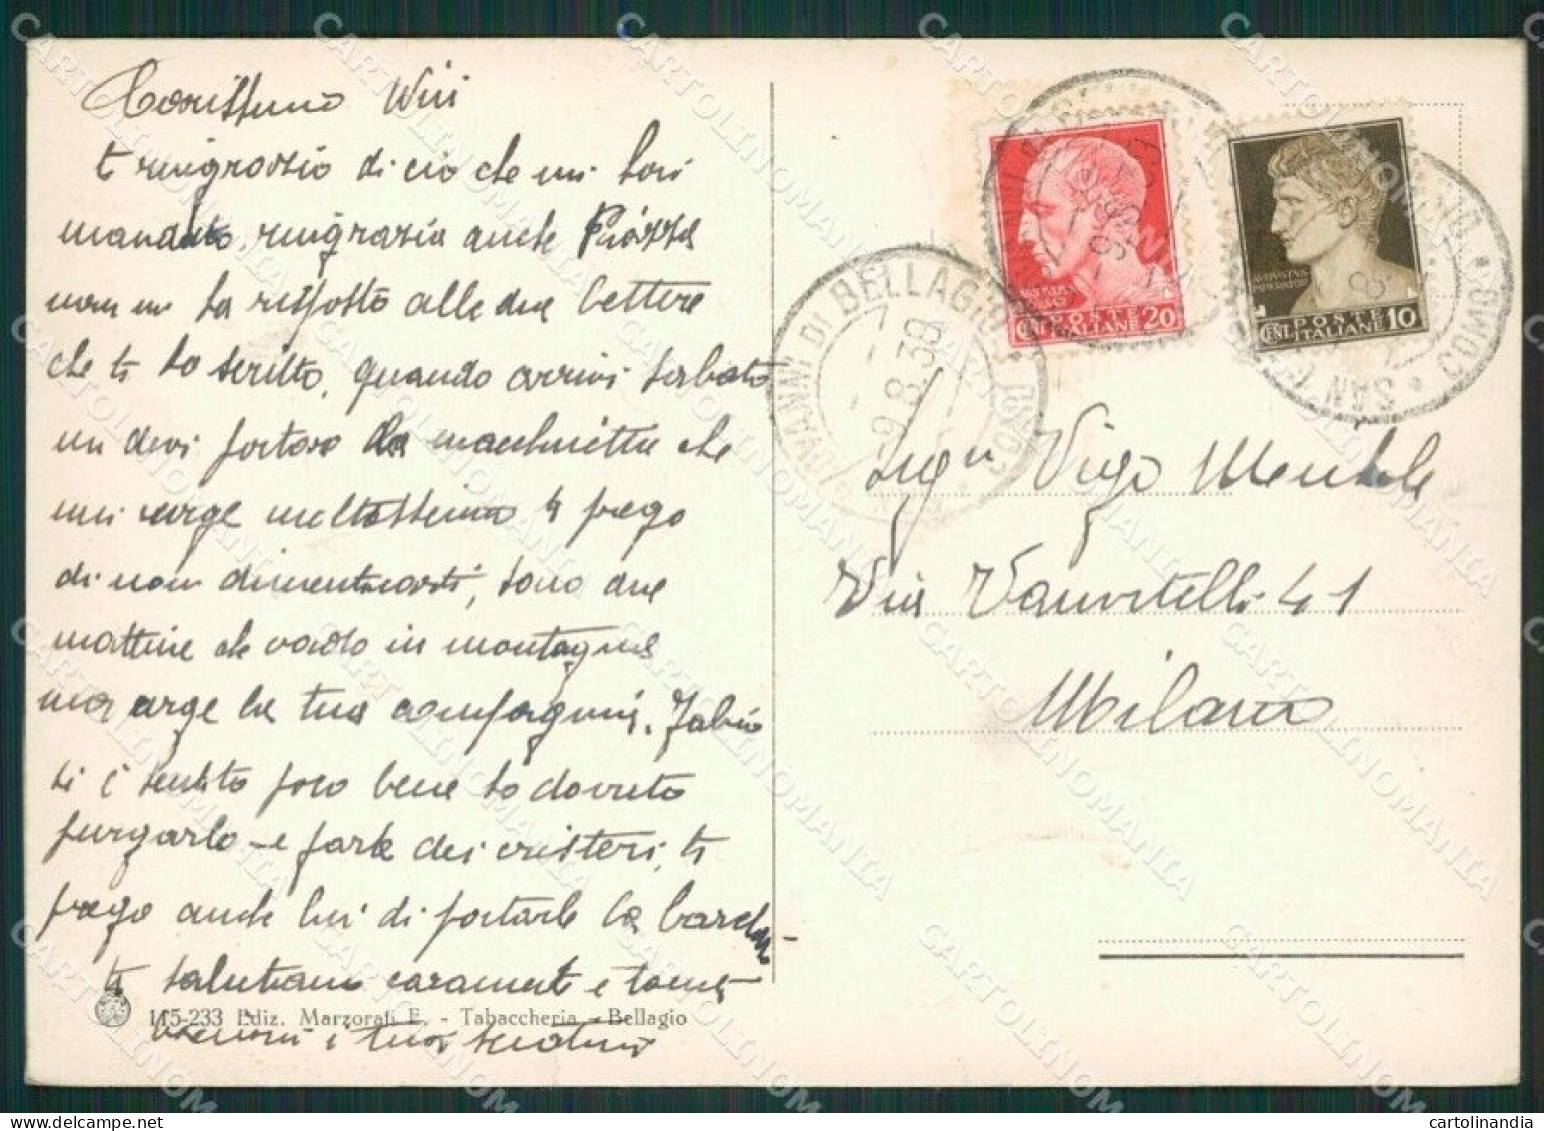 Carissimo Wili
ti ringrazio di ciò che mi hai
mandato, ringrazia anche
non mi ha risposto alle due lettere
che ti ho scritto, quando arrivi sabato
mi devi portare la macchinetta che
mi urge moltissimo ti prego
di non dimenticarti, sono due
mattine che vado in montagna
ma urge la tua compagnia. Fabio
si è sentito poco bene ho dovuto
purgarlo - e farle dei clisteri, ti
prego anche lui di portarle la barchetta
ti salutiamo caramente e
i tuoi
115-233 Ediz. Marzorati E. - Tabaccheria - Bellagio
Sign Vigo
Via Vanvitelli 41
Milano
POSTE ITALIANE CENT 20
POSTE ITALIANE CENT 10
SAN GIOVANNI DI BELLAGIO * (COMO) *
9.8.39
CARTOLINOMANIA
cartolinandia